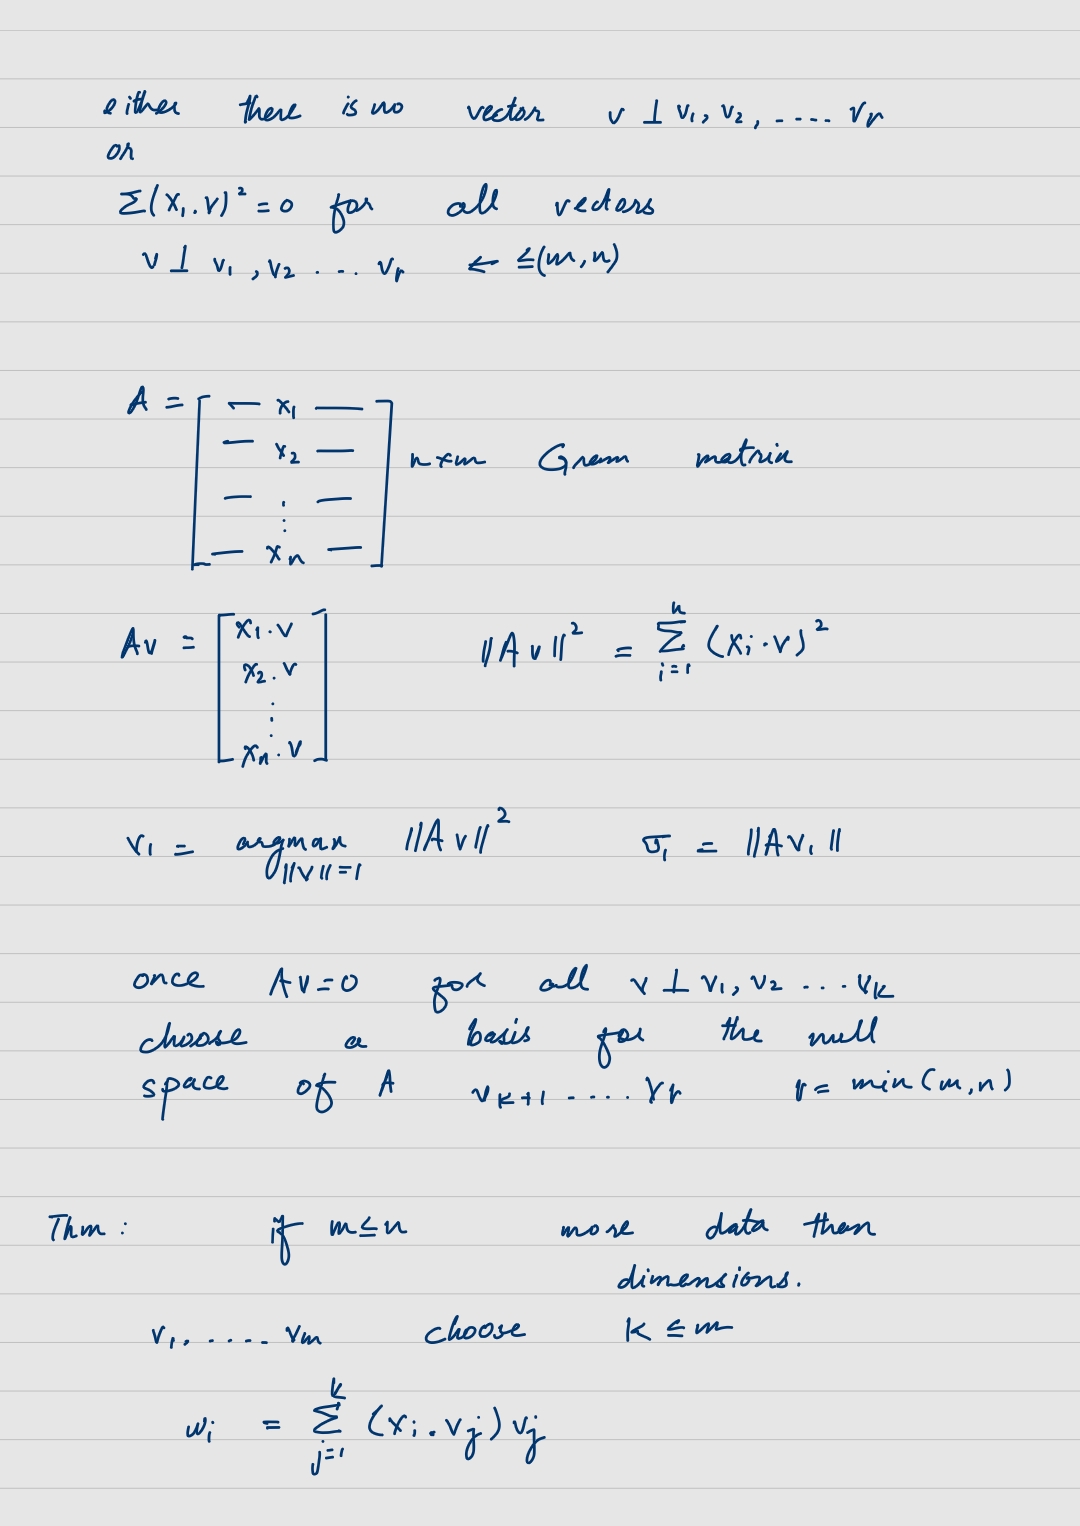 either there is no vector v ⊥ v₁, v₂, .... vᵣ
or
Σ(x₁.v)² = 0 for all vectors
v ⊥ v₁, v₂ ... vᵣ ← ≤(m,n)
A = [ — x₁ —
— x₂ —
— ⋮ —
— xₙ — ] n×m Gram matrix
Av = [ x₁.v
x₂.v
⋮
xₙ.v ] ||Av||² = Σᵢ₌₁ⁿ (xᵢ.v)²
v₁ = argmax_{||v||=1} ||Av||² σ₁ = ||Av₁||
once Av=0 for all v ⊥ v₁, v₂ ... vₖ
choose a basis for the null
space of A vₖ₊₁ ..... vᵣ r = min(m,n)
Thm: if m≤n more data than
dimensions.
v₁, ..... vₘ choose k ≤ m
wᵢ = Σⱼ₌₁ᵏ (xᵢ.vⱼ) vⱼ